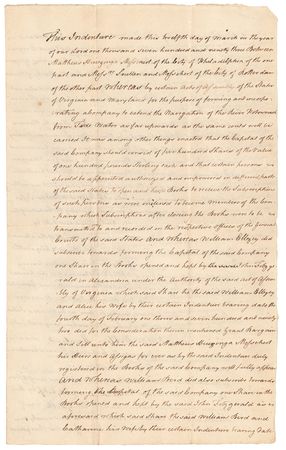 This Indenture made this twelfth day of March in the year
of our Lord one thousand seven hundred and ninety three Between
Matthew of the City of Philadelphia of the one
part and Messrs. and of the City of Rotterdam
of the other part Whereas by certain Acts of Assembly of the States
of Virginia and Maryland for the purpose of forming and incorpo
rating a Company to extend the Navigation of the River Potowmac
from Tide Water as far upwards as the same could not be
carried It was among other things enacted that the Capital of the
said Company should consist of five hundred Shares of the value
of one hundred pounds Sterling each and that certain persons
should be appointed authorized and impowered in different parts
of the said States to open and keep Books to receive the Subscriptions
of such persons as were disposed to become members of the Com
pany which Subscriptions after closing the Books were to be
transmitted to and recorded in the respective offices of the General
Courts of the said States And Whereas William did
subscribe towards forming the Capital of the said Company
one Share in the Books opened and kept by John Fitzge
rald in Alexandria under the Authority of the said act of Assem
bly of Virginia which said Share the said William
and his Wife by their certain Indenture bearing date the
fourth day of February one thousand seven hundred and ninety
two did for the Consideration therein mentioned grant Bargain
and Sell unto him the said Matthew
his Heirs and Assigns for ever as by the said Indenture duly
registered in the Books of the said Company will fully appear
And Whereas William Bird did also subscribe towards
forming the Capital of the said Company one Share in the
Books opened and kept by the said John Fitzgerald as
aforesaid which said Share the said William Bird and
Catharine his Wife by their certain Indenture bearing date